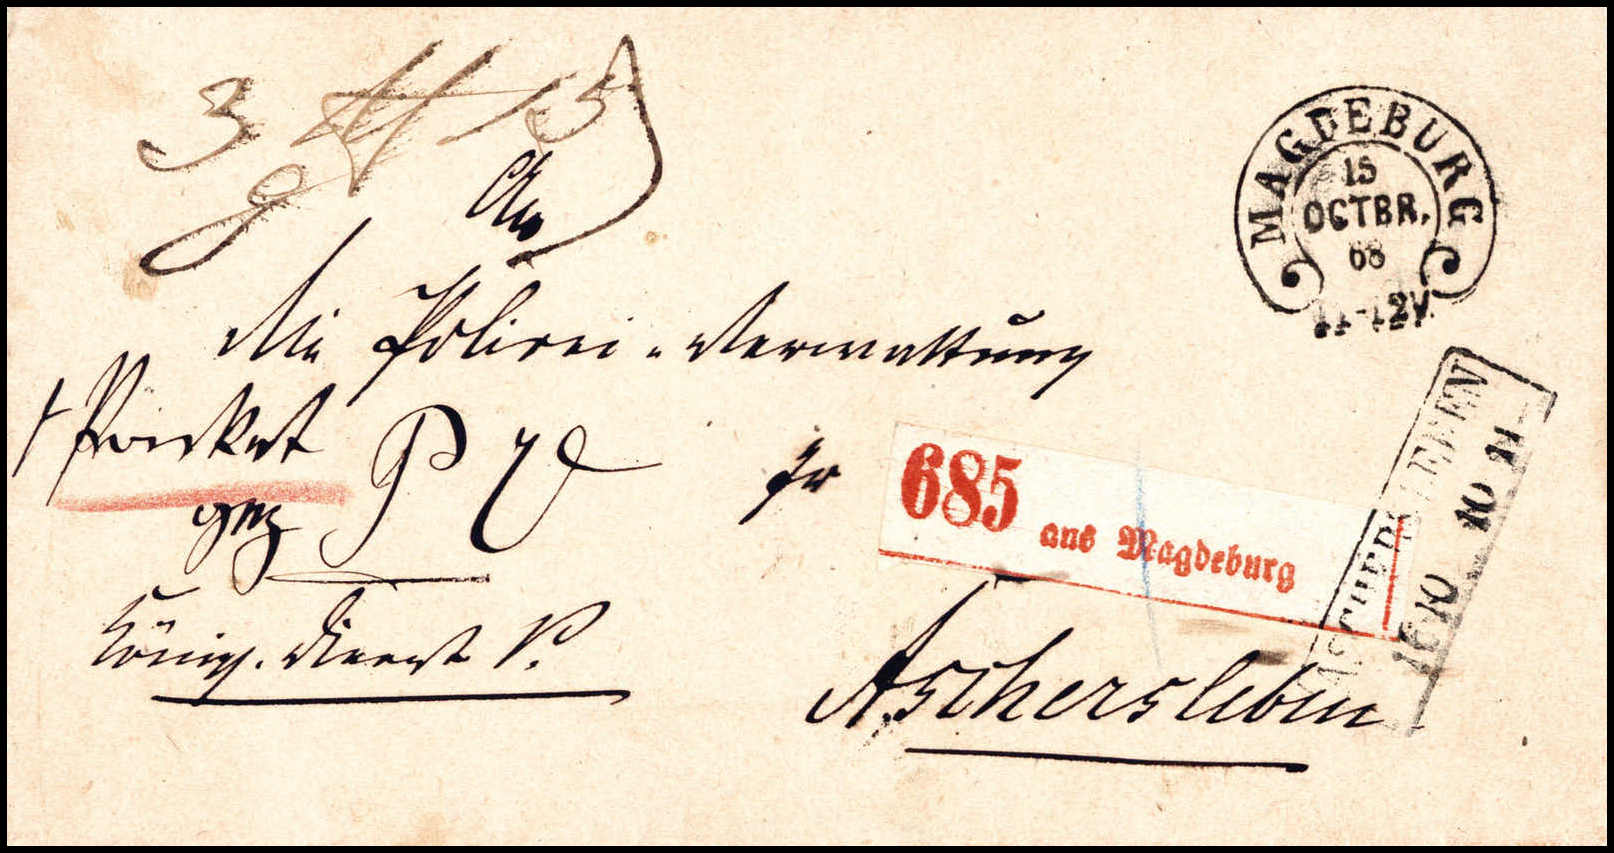 3 ℔ 15
An
die Polizei-Verwaltung
1 Packet
gez P V
zu
685 aus Magdeburg
Königl. Dienst S.
Aschersleben
MAGDEBURG
15
OCTBR.
68
11-12V.
ASCHERSLEBEN
15 10 10 N